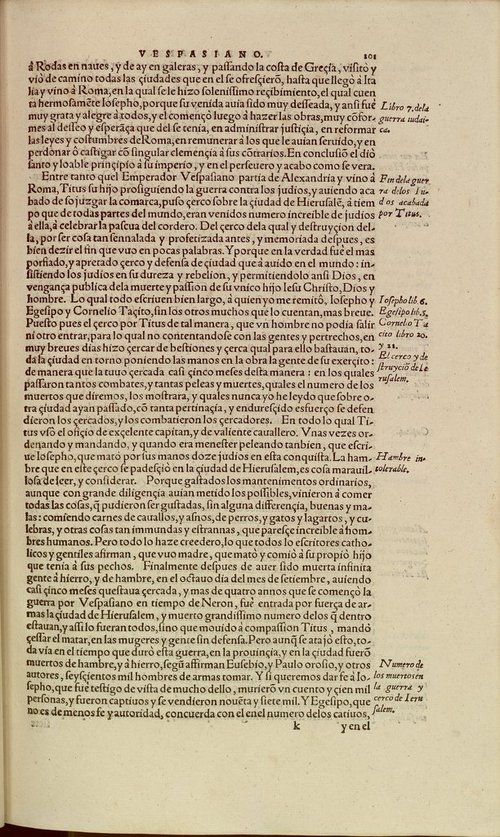 VESPASIANO. 101
à Rodas en naues, y de ay en galeras, y passando la costa de Greçia, visitò y
viò de camino todas las çiudades que en el se ofresçierõ, hasta que llegò à Ita
lia y vino à Roma, en la qual se le hizo solenissimo reçibimiento, el qual cuen
ta hermosamẽte Iosepho, porque su venida auia sido muy desseada, y ansi fué
muy grata y alegre a todos, y el començò luego à hazer las obras, muy cõfor-
mes al desseo y esperãça que del se tenia, en administrar justiçia, en reformar
las leyes y costumbres de Roma, en remunerar à los que le auian seruido, y en
perdonar ò castigar cõ singular clemençia à sus cõtrarios. En conclusiõ el diò
santo y loable prinçipio à su imperio, y en el perseuero y acabo como se vera.
Libro 7. dela
guerra iudai-
ca.
Entre tanto quel Emperador Vespasiano partia de Alexandria y vino à
Roma, Titus su hijo prosiguiendo la guerra contra los judios, y auiendo aca
bado de sojuzgar la comarca, puso çerco sobre la çiudad de Hierusalẽ, à tiem
po que de todas partes del mundo, eran venidos numero increible de judios
à ella, à celebrar la pascua del cordero. Del çerco dela qual y destruyçion del-
la, por ser cosa tan sennalada y profetizada antes, y memoriada despues, es
bien dezir el fin que vuo en pocas palabras. Y porque en la verdad fué el mas
porfiado, y apretado çerco y defensa de çiudad que à auido en el mundo: in-
sistiendo los judios en su dureza y rebelion, y permitiendolo ansi Dios, en
vengança publica dela muerte y passion de su vnico hijo Iesu Christo, Dios y
hombre. Lo qual todo escriuen bien largo, à quien yo me remitô, Iosepho y
Egesipo y Cornelio Taçito, sin los otros muchos que lo cuentan, mas breue.
Puesto pues el çerco por Titus de tal manera, que vn hombre no podia salir
ni otro entrar, para lo qual no contentandose con las gentes y pertrechos, en
muy breues dias hizo çercar de bestiones y çerca qual para ello bastauan, to-
da la çiudad en torno poniendo las manos en la obra la gente de su exerçito:
de manera que la tuuo çercada casi çinco meses desta manera: en los quales
passaron tantos combates, y tantas peleas y muertes, quales el numero de los
muertos que diremos, los mostrara, y quales nunca yo he leydo que sobre o-
tra çiudad ayan passado, cõ tanta pertinaçia, y enduresçido esfuerço se defen
dieron los çercados, y los combatieron los çercadores. En todo lo qual Ti-
tus vsò el ofiçio de excelente capitan, y de valiente cauallero. Vnas vezes or-
denando y mandando, y quando era menester peleando tanbien, que escri-
ue Iosepho, que matò por sus manos doze judios en esta conquista. La ham-
bre que en este çerco se padesçiò en la çiudad de Hierusalem, es cosa marauil-
losa de leer, y considerar. Porque gastados los mantenimientos ordinarios,
aunque con grande diligençia auian metido los possibles, vinieron à comer
todas las cosas, q̃ pudieron ser gustadas, sin alguna differençia, buenas y ma-
las: comiendo carnes de cauallos, y asnos, de perros, y gatos y lagartos, y cu-
lebras, y otras cosas tan immundas y estrannas, que paresçe increible à hom-
bres humanos. Pero todo lo haze creedero, lo que todos lo escritores catho-
licos y gentiles afirman, que vuo madre, que matò y comiò à su propiò hijo
que tenia à sus pechos. Finalmente despues de auer sido muerta infinita
gente à hierro, y de hambre, en el octauo dia del mes de setiembre, auiendo
casi çinco meses questaua çercada, y mas de quatro annos que se començò la
guerra por Vespasiano en tiempo de Neron, fuè entrada por fuerça de ar-
mas la çiudad de Hierusalem, y muerto grandissimo numero delos q̃ dentro
estauan, y assi lo fueran todos, sino que mouido à compassion Titus, mandò
çessar el matar, en las mugeres y gente sin defensa. Pero aunq̃ se atajò esto, to-
da via en el tiempo que durò esta guerra, en la prouinçia, y en la çiudad fuerõ
muertos de hambre, y à hierro, segũ affirman Eusebio, y Paulo orosio, y otros
autores, seysçientos mil hombres de armas tomar. Y si queremos dar fe à Io-
sepho, que fuè testigo de vista de mucho dello, murierõ vn cuento y çien mil
personas, y fueron captiuos y se vendieron nouẽta y siete mil. Y Egesipo, que
no es de menos fe y autoridad, concuerda con el en el numero delos catiuos,
Fin dela guer
ra delos Iu-
dios acabada
por Titus.
Iosepho lib. 6.
Egesipo lib. 5,
Cornelio Ta
cito libro 20.
y 21.
El cerco y de
struyciõ de Ie
rusalem.
Hambre in-
tolerable.
Numero de
los muertos en
la guerra y
cerco de Ieru
salem.
k y en el